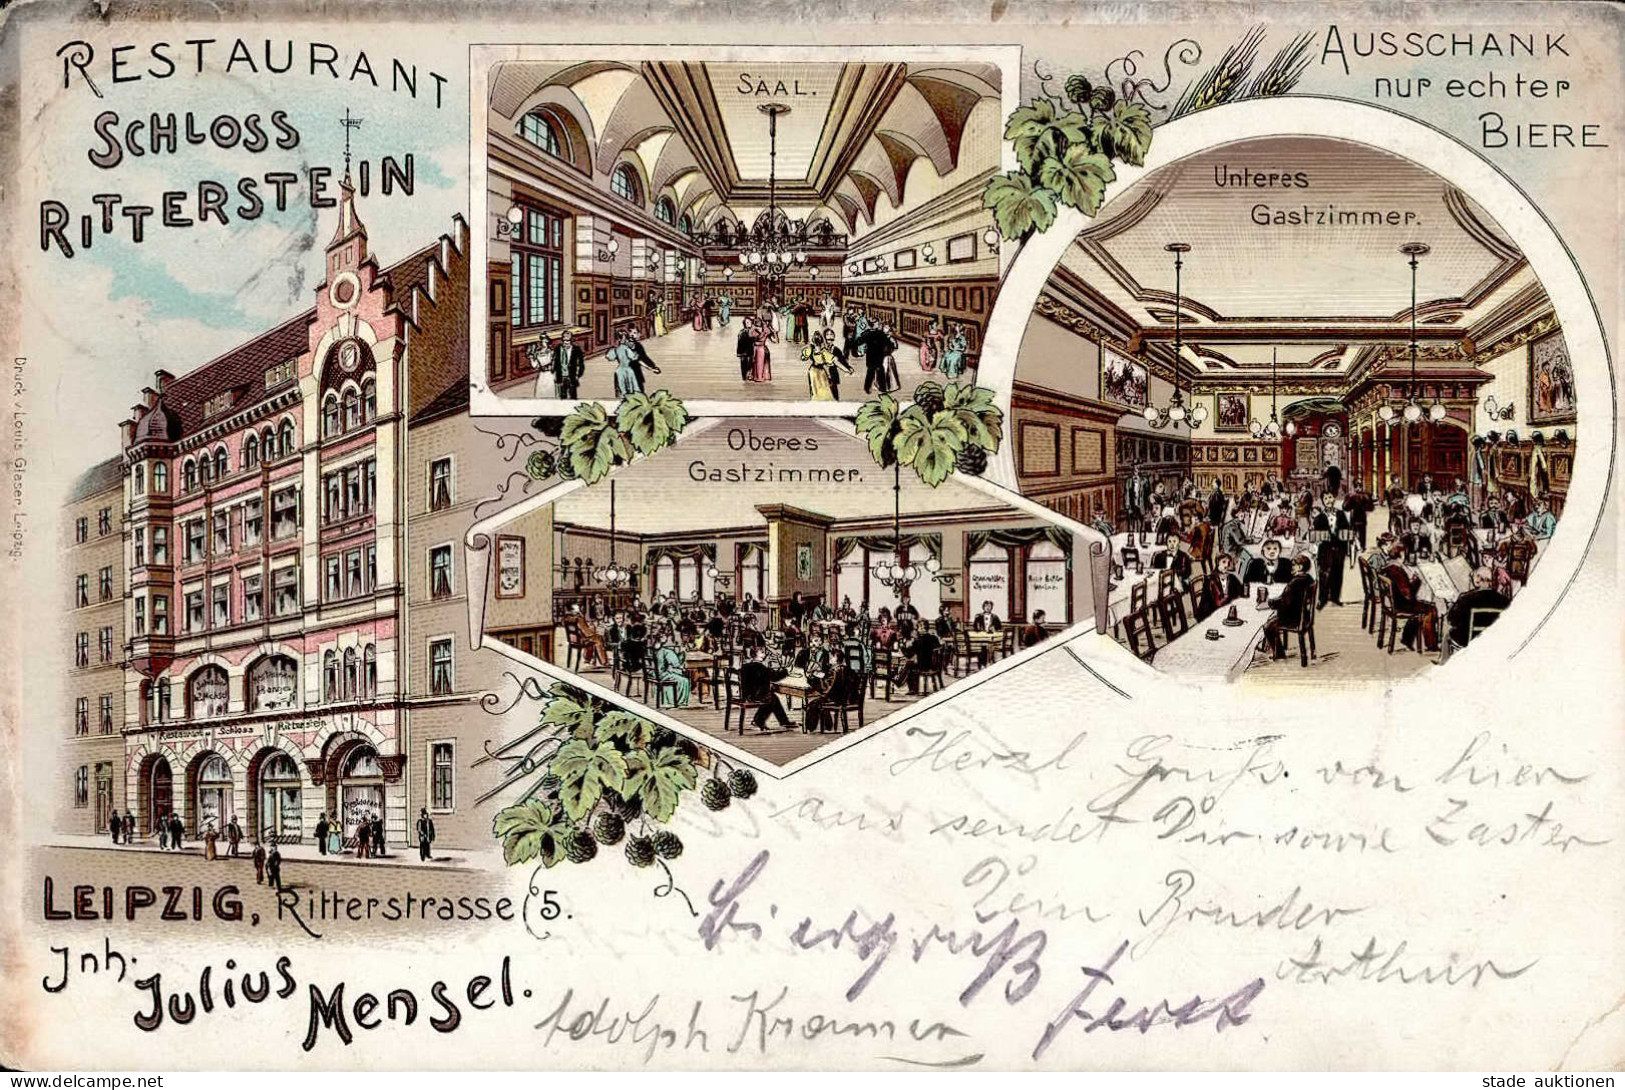 RESTAURANT
SCHLOSS
RITTERSTEIN
SAAL.
AUSSCHANK
nur echter
BIERE
Unteres
Gastzimmer.
Oberes
Gastzimmer.
Restaurant Schloss Ritterstein
Druck v. Louis Glaser, Leipzig.
LEIPZIG, Ritterstrasse 5.
Jnh. Julius Mensel.
Herzl. Gruß von hier
aus sendet Dir sowie
Dein Bruder
Arthur
Biergruß
Adolph Krammer
stade auktionen